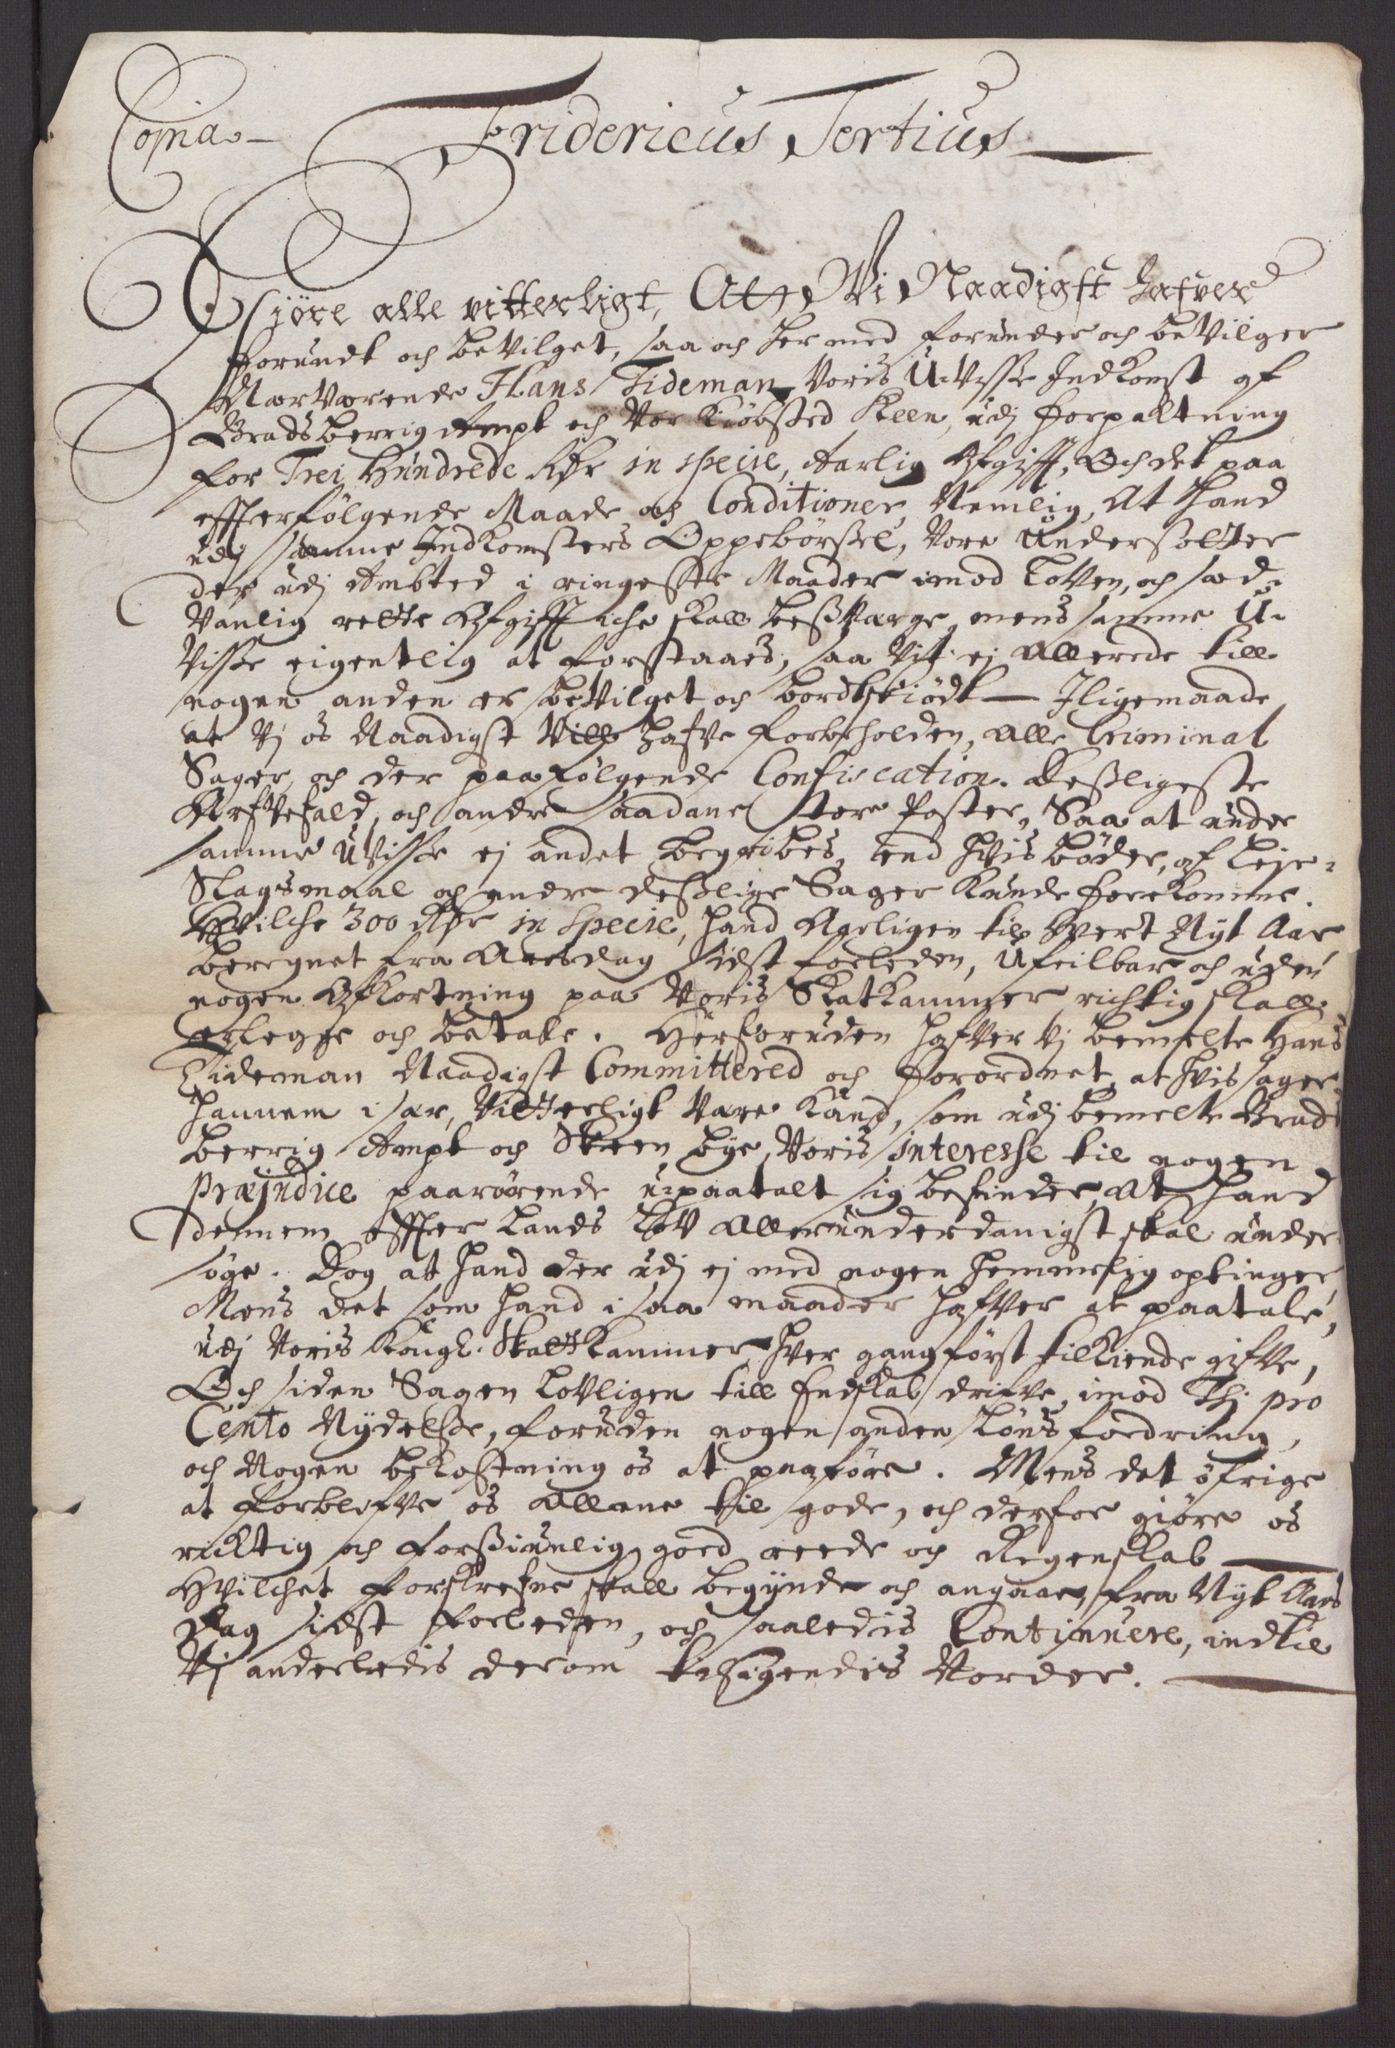 Copia
Fridericus Tertius
Giöre alle vitterligt, At Wi Naadigst hafver
forundt och beVilget, saa och her med forunder och beVilger
NærVærende Hans Tideman Voris U-Visse Indkomst af
Bradsberrig Ampt och Vor Kiöbsted Skeen, udj forpaktning
for Trej Hundrede Rdr in specie, Aarlig Afgifft, Och det paa
effterfölgende Maade och Conditioner Nemlig, At hand
udj samme Indkomsters Oppebörsel, Vore Undersotter
der udj Ambted i ringeste Maader imod loVen, och sæd-
Vanlig rette Afgifft iche skall beßVærge, mens samme U-
Visse eigentlig at forstaaes, saa Vit ej allerede till
nogen anden er beVilget och bordtskiödt — Iligemaade
at Vj os Naadigst Ville hafve forbeholden, alle Criminal
Sager, och der paafölgende Confiscation. Deßligeste
Arfvefald, och andre saadane store Poster, Saa at under
samme UVisse ej andet begribes, end hvis böder, af Leje-
Slagsmaal och andre deslige Sager kunde forekomme.
Hvilche 300 Rdr in specie, hand Aarligen till hvert Nyt Aar
beregnet fra Aarsdag sidst forleden, Ufeilbar och uden
nogen Afkortning paa Voris Skatkammer richtig skall
erlegge och betale. Herforuden hafver Vj bemelte Hans
Tideman Naadigst Committered och forordnet, at hvis sager
hannem i sær, Vitterligt Være kand, som udj bemelte Brads
berrig Ampt och Skeen bye, Voris interesse til nogen
Præjudice paarörende u-paatalt sig befinder, At hand
dennem effter Lands Lov Allerunderdanigst skal under
söge. Dog at hand der udj ej med nogen hemmelig optinger,
Mens det som hand i saa maader hafver at paatale,
udj Voris Kongl. Skattkammer hver gang först tilkiende gifve,
Och siden Sagen loVligen till Endskab drifve, imod Thj pro
Cento Nydelse, foruden nogen anden löns fordring,
och Nogen bekostning os at paaföre. Mens det öfrige
at forblifve os allene til gode, och derfor giöre os
richtig och forßiunlig goed reede och Regenskab —
Hvilchet forskrefne skall begynde och angaae, fra Nyt Aars
Dag sidst forleden, och saaledis Continuere, indtil
Vj anderledis derom tilsigendis Vorder.